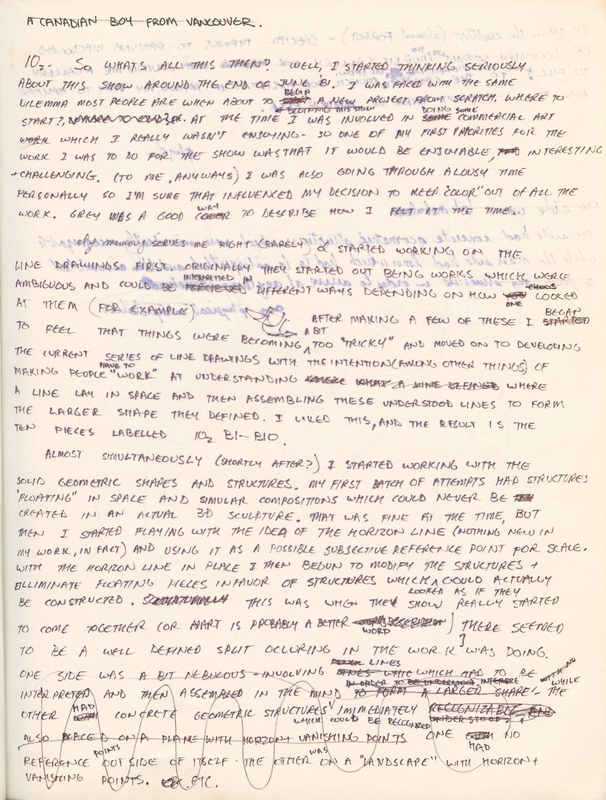 A CANADIAN BOY FROM VANCOUVER.
10₂ - SO WHATS ALL THIS THEN? WELL, I STARTED THINKING SERIOUSLY
ABOUT THIS SHOW AROUND THE END OF JUNE '81. I WAS FACED WITH THE SAME
DILEMMA MOST PEOPLE ARE WHEN ABOUT TO BEGIN A NEW PROJECT FROM SCRATCH. WHERE TO
START?, AT THE TIME I WAS INVOLVED IN DOING SOME COMMERCIAL ART
WORK WHICH I REALLY WASN'T ENJOYING - SO ONE OF MY FIRST PRIORITIES FOR THE
WORK I WAS TO DO FOR THE SHOW WAS THAT IT WOULD BE ENJOYABLE, INTERESTING
+ CHALLENGING. (TO ME, ANYWAYS) I WAS ALSO GOING THROUGH A LOUSY TIME
PERSONALLY SO I'M SURE THAT INFLUENCED MY DECISION TO KEEP "COLOR" OUT OF ALL THE
WORK. GREY WAS A GOOD WAY COLOR TO DESCRIBE HOW I FELT AT THE TIME.
IF MEMORY SERVES ME RIGHT (RARELY) I STARTED WORKING ON THE
LINE DRAWINGS FIRST. ORIGINALLY THEY STARTED OUT BEING WORKS WHICH WERE
AMBIGUOUS AND COULD BE INTERPRETED PERCIEVED IN DIFFERENT WAYS DEPENDING ON HOW YOU ONE CHOOSES LOOKED
AT THEM (FOR EXAMPLE) AFTER MAKING A FEW OF THESE I BEGAN STARTED
TO FEEL THAT THINGS WERE BECOMING A BIT TOO "TRICKY" AND MOVED ON TO DEVELOPING
THE CURRENT SERIES OF LINE DRAWINGS WITH THE INTENTION (AMONG OTHER THINGS) OF
MAKING PEOPLE HAVE TO "WORK" AT UNDERSTANDING WHERE WHAT A LINE DEFINED WHERE
A LINE LAY IN SPACE AND THEN ASSEMBLING THESE UNDERSTOOD LINES TO FORM
THE LARGER SHAPE THEY DEFINED. I LIKED THIS, AND THE RESULT IS THE
TEN PIECES LABELLED 10₂ B1 - B10.
ALMOST SIMULTANEOUSLY (SHORTLY AFTER?) I STARTED WORKING WITH THE
SOLID GEOMETRIC SHAPES AND STRUCTURES. MY FIRST BATCH OF ATTEMPTS HAD STRUCTURES
"FLOATING" IN SPACE AND SIMULAR COMPOSITIONS WHICH COULD NEVER BE
CREATED IN AN ACTUAL 3D SCULPTURE. THAT WAS FINE AT THE TIME, BUT
THEN I STARTED PLAYING WITH THE IDEA OF THE HORIZON LINE (NOTHING NEW IN
MY WORK, IN FACT) AND USING IT AS A POSSIBLE SUBJECTIVE REFERENCE POINT FOR SCALE.
WITH THE HORIZON LINE IN PLACE I THEN BEGUN TO MODIFY THE STRUCTURES +
ELLIMINATE FLOATING PIECES IN FAVOR OF STRUCTURES WHICH LOOKED AS IF THEY COULD ACTUALLY
BE CONSTRUCTED. THIS WAS WHEN THE SHOW REALLY STARTED
TO COME TOGETHER (OR APART IS PROBABLY A BETTER WORD DESCRIPTION) THERE SEEMED
TO BE A WELL DEFINED SPLIT OCCURING IN THE WORK I WAS DOING.
ONE SIDE WAS A BIT NEBULOUS - INVOLVING LINES WHICH HAD TO BE
INTERPRETED AND THEN ASSEMBLED IN THE MIND TO FORM A LARGER SHAPE. WHILE THE
OTHER HAD CONCRETE GEOMETRIC STRUCTURES IMMEDIATELY RECOGNIZABLE, AND
WHICH COULD BE RECOGNIZED UNDERSTOOD
ALSO PLACED ON A PLANE WITH HORIZON + VANISHING POINTS ONE HAD NO
REFERENCE POINTS OUTSIDE OF ITSELF - THE OTHER WAS ON A "LANDSCAPE" WITH HORIZON +
VANISHING POINTS. ETC.